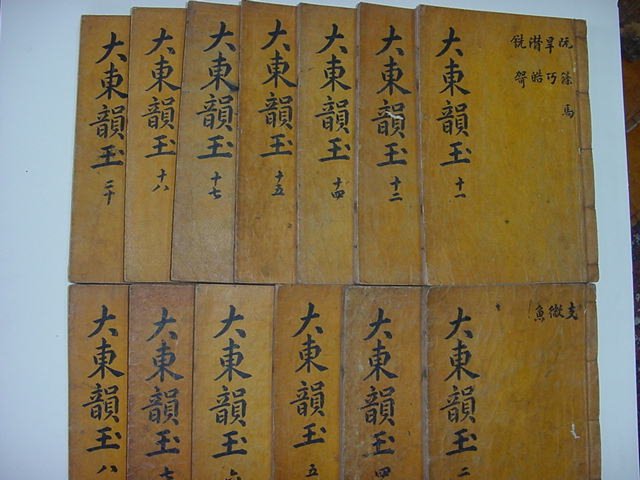 阮 旱 潸 銑
篠 巧 皓 哿
馬
大東韻玉 十一
大東韻玉 十二
大東韻玉 十四
大東韻玉 十五
大東韻玉 十七
大東韻玉 十八
大東韻玉 二十
支 微 魚
大東韻玉 二
大東韻玉 四
大東韻玉 五
大東韻玉 六
大東韻玉 七
大東韻玉 八